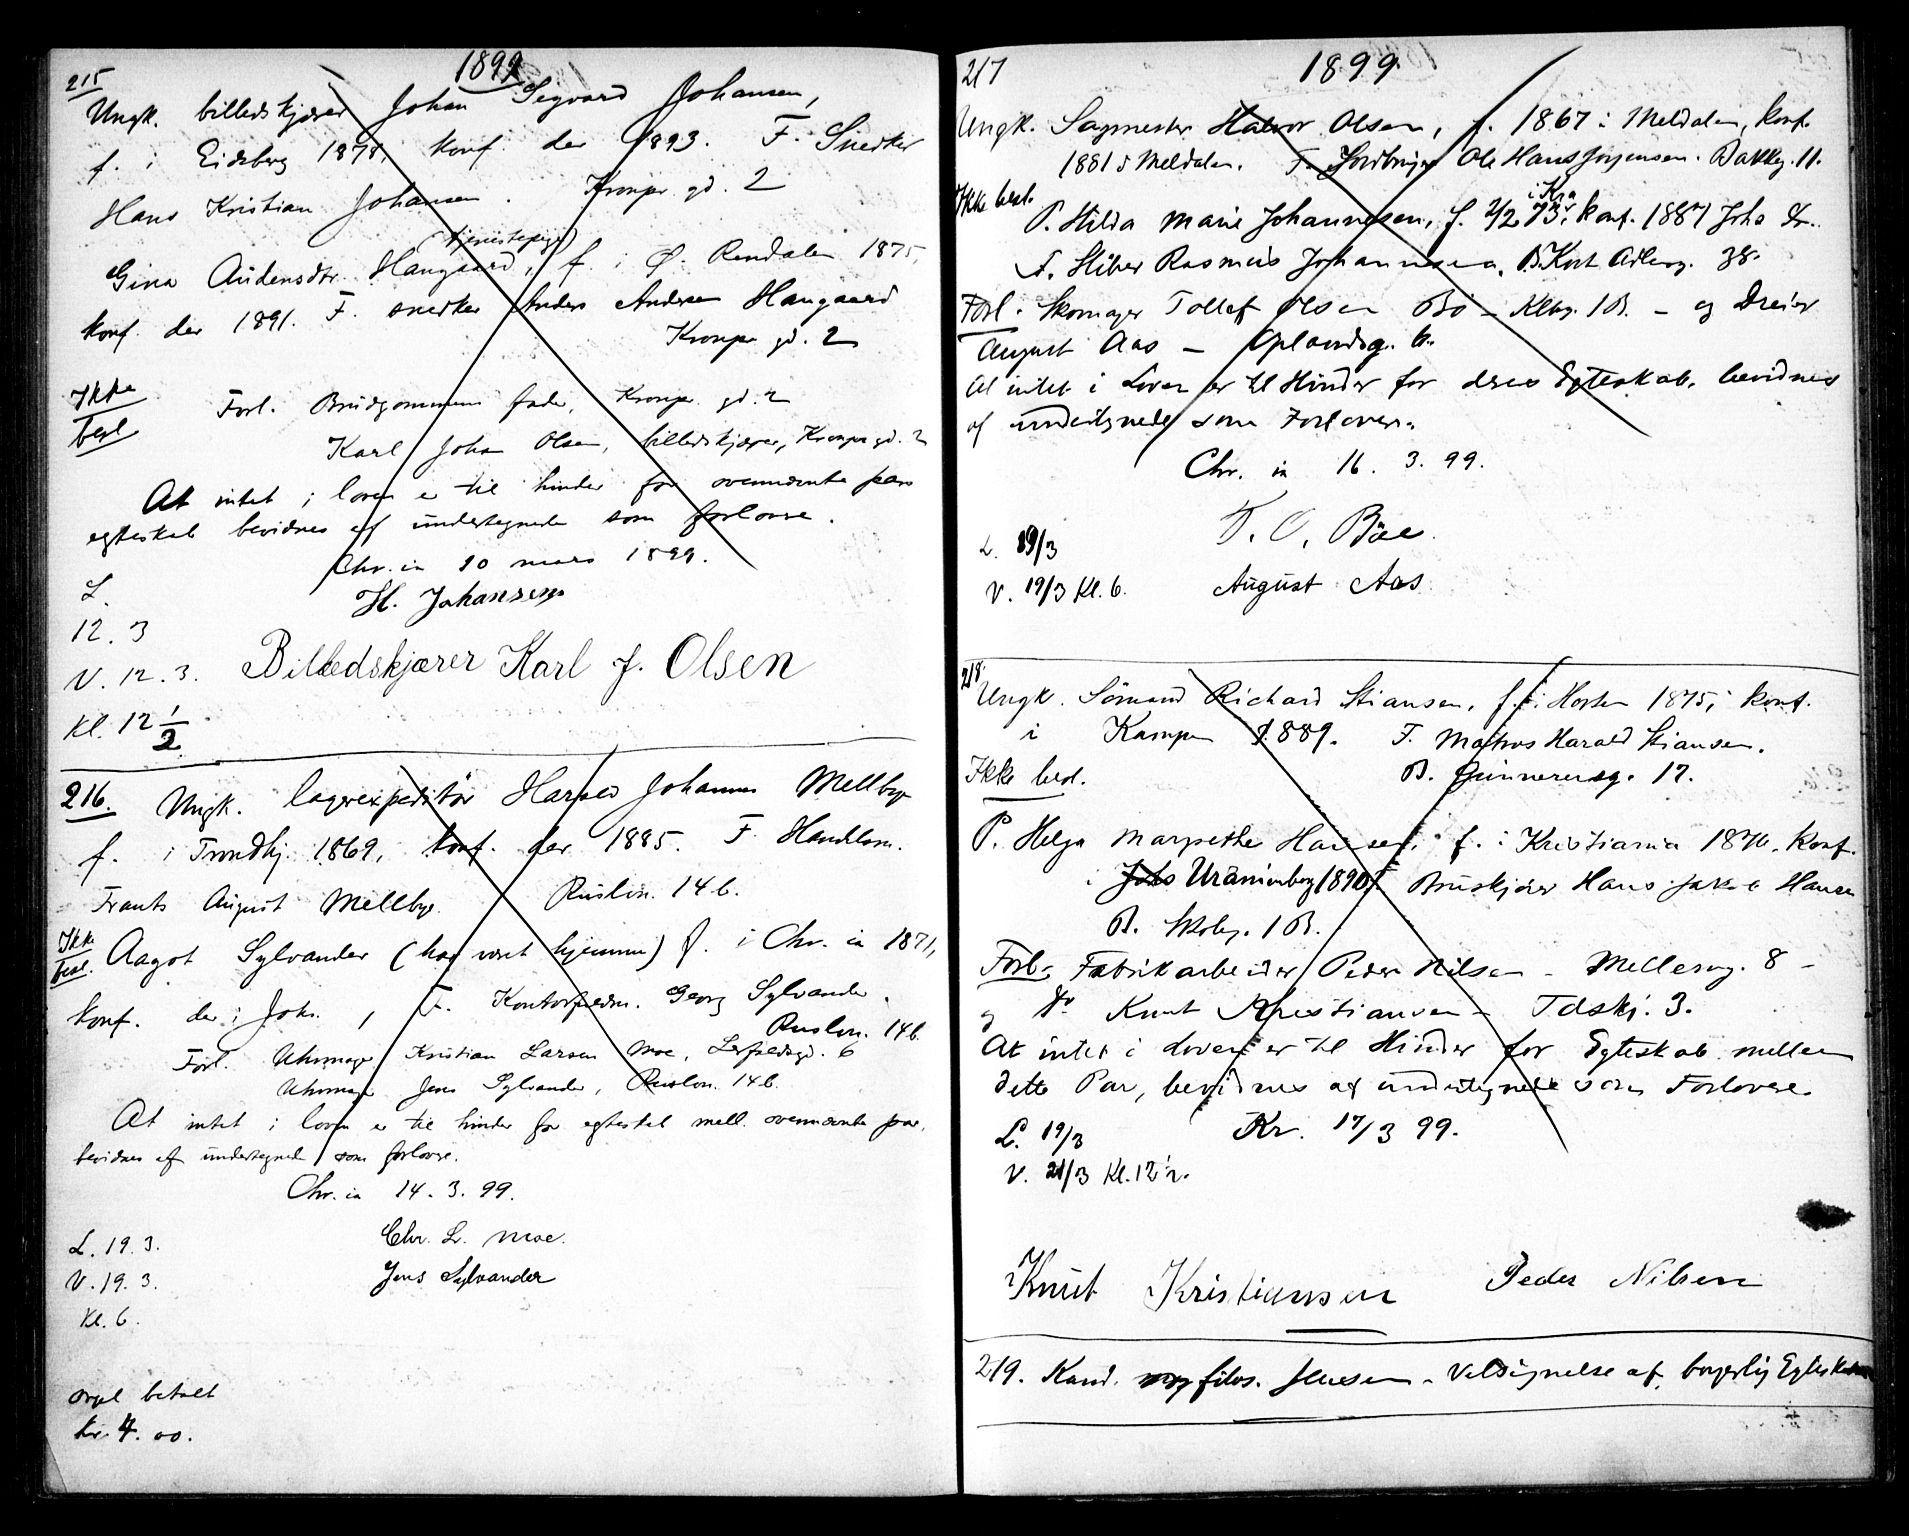 215
1899
Ungk. billedskjærer Johan Sigvard Johansen,
f. i Eidsberg 1878, konf. der 1893. F. Snedker
Hans Kristian Johansen. Kronpr. gd. 2
(tjenestepige)
Gina Audensdtr. Haugaard, f. i Ø. Rendalen 1875,
konf. der 1891. F. snedker Anders Andersen Haugaard
Kronpr. gd. 2
Ikke
besl.
Forl. Brudgommens fader, Kronpr. gd. 2
Karl Johan Olsen, billedskjærer, Kronpr. gd. 2
At intet i loven er til hinder for ovennævnte pars
egteskab bevidnes af undertegnede som forlovere.
Chr.ia 10 mars 1899.
H. Johansen
L.
12. 3
V. 12. 3.
Kl. 12 1/2
Billedskjærer Karl J. Olsen
216. Ungk. lagerexpeditør Harald Johannes Mellbye
f. i Trondhj. 1869, konf. der 1885. F. Handelsm.
Frants August Mellbye Rusløn. 14 b.
Ikke
besl.
Aagot Sylvander (har vært hjemme) f. i Chr.ia 1871,
konf. der i Joh., F. Kontorfuldm. Georg Sylvander.
Rusløn. 14 b.
Forl. Uhrmager Kristian Larsen Moe, 6
Uhrmager Jens Sylvander, Rusløn. 14 b.
At intet i loven er til hinder for egteskab mell. ovennævnte par,
bevidnes af undertegnede som forlovere.
Chr.ia 14. 3. 99.
L. 19. 3.
V. 19. 3.
Kl. 6.
Chr. L. Moe.
Jens Sylvander
orgel betalt
kr. 4. 00.
217
1899
Ungk. Sagmester Halvor Olsen, f. 1867 i Meldalen, konf.
1881 i Meldalen. F. Jordbruger Ole Hans Jørgensen. Bakkeg. 11.
Ikke besl.
i Kra
P. Hilda Marie Johannesen, f. 2/2 73, konf. 1887 Johs K.
F. Sliber Rasmus Johannesen, B. Kort Adlersg. 38.
Forl. Skomager Tollef Olsen Bö - Klbg. 1 B. - og Dreier
August Aas - Oplandsg. 6.
At intet i Loven er til Hinder for deres Egteskab, bevidnes
af undertegnede som Forlovere.
Chr.ia 16. 3. 99.
T. O. Böe.
L. 19/3
V. 19/3 Kl. 6.
August Aas
218.
Ungk. Sömand Richard Stiansen, f. i Horten 1875, konf.
i Kampen 1889. F. Matros Harald Stiansen.
Ikke besl.
B. Gunnerusg. 17.
P. Helga Margrethe Hansen, f. i Kristiania 1876, konf.
i Johs Uranienborg 1890. F. Bruskjører Hans Jakob Hansen
B. Skobg. 1 B.
Forl: Fabrikarbeider Peder Nilsen - Mellemg. 8 -
og Do Knut Kristiansen - 3.
At intet i Loven er til Hinder for Egteskab mellem
dette Par, bevidnes af undertegnede som Forlovere.
L. 19/3
V. 21/3 Kl. 12 1/2.
Kr. 17/3 99.
Knut Kristiansen Peder Nilsen
219. Kand. filos. Jensen - Velsignelse af borgerlig Egteskab